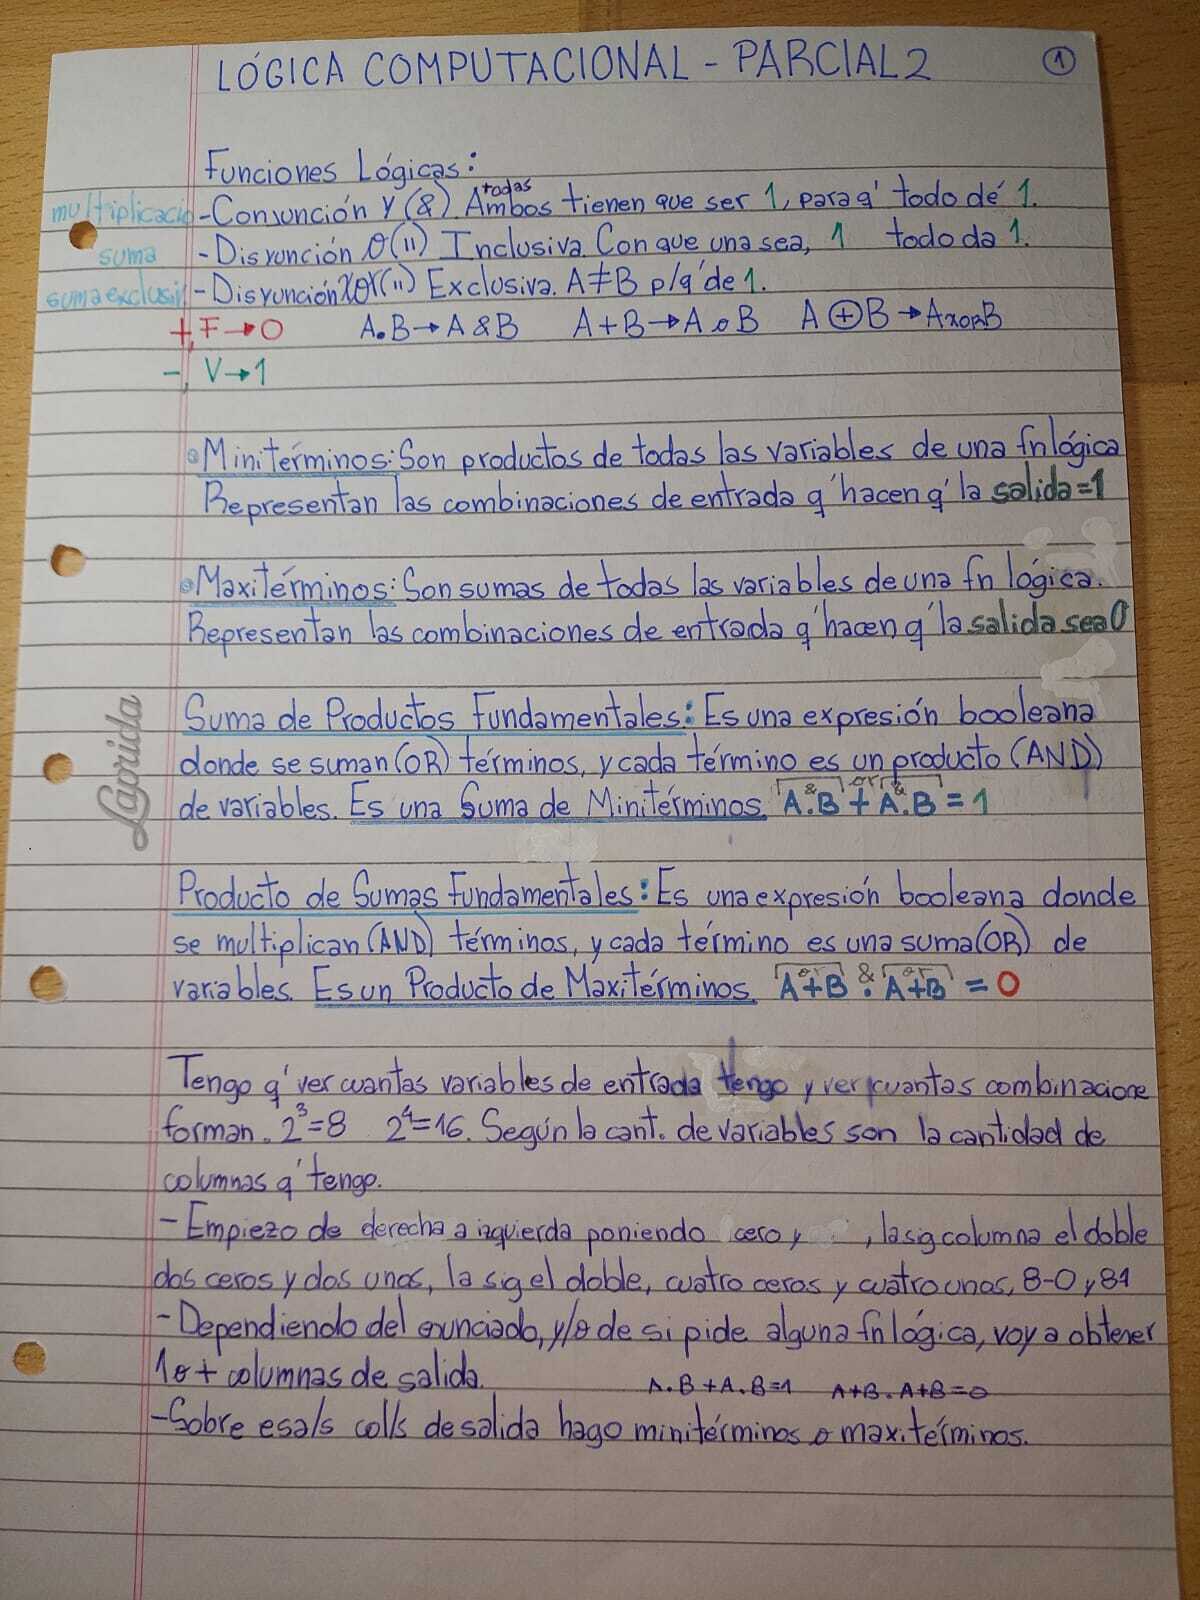 LÓGICA COMPUTACIONAL - PARCIAL 2
1
Funciones Lógicas:
todas
multiplicacio - Conjunción Y (&) Ambos tienen que ser 1, para q' todo dé 1.
suma - Disyunción O (||) Inclusiva. Con que una sea, 1 todo da 1.
suma exclusiv - Disyunción xor (||) Exclusiva. A≠B p/q' de 1.
+, F→0 A.B→A & B A+B→A o B A⊕B→A xor B
-, V→1
Minitérminos: Son productos de todas las variables de una fn lógica
Representan las combinaciones de entrada q' hacen q' la salida=1
Maxitérminos: Son sumas de todas las variables de una fn lógica.
Representan las combinaciones de entrada q' hacen q' la salida sea 0
Lagrida
Suma de Productos Fundamentales: Es una expresión booleana
donde se suman (OR) términos, y cada término es un producto (AND)
& or &
de variables. Es una Suma de Minitérminos. A.B + A.B = 1
Producto de Sumas Fundamentales: Es una expresión booleana donde
se multiplican (AND) términos, y cada término es una suma (OR) de
or & or
variables. Es un Producto de Maxitérminos. A+B . A+B = 0
Tengo q' ver cuantas variables de entrada tengo y ver cuantas combinacione
forman. 2³=8 2⁴=16. Según la cant. de variables son la cantidad de
columnas q' tengo.
- Empiezo de derecha a izquierda poniendo cero y , la sig columna el doble
dos ceros y dos unos, la sig el doble, cuatro ceros y cuatro unos, 8-0 y 81
- Dependiendo del enunciado, y/o de si pide alguna fn lógica, voy a obtener
1 o + columnas de salida. A.B + A.B=1 A+B . A+B=0
- Sobre esa/s col/s de salida hago minitérminos o maxitérminos.